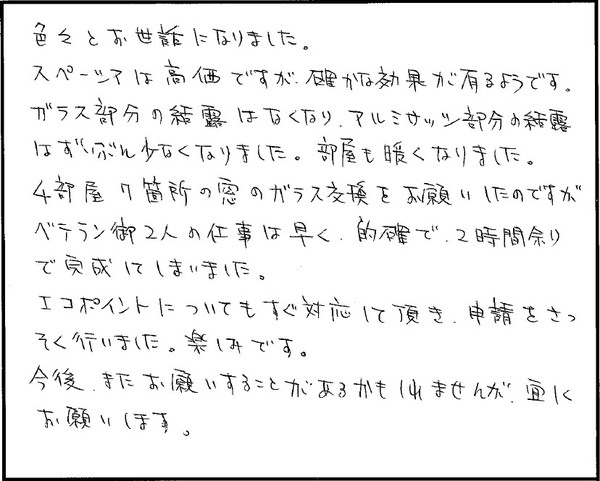 色々とお世話になりました。
スペーシアは高価ですが、確かな効果が有るようです。
ガラス部分の結露はなくなり、アルミサッシ部分の結露
はずいぶん少なくなりました。部屋も暖くなりました。
4部屋7箇所の窓のガラス交換をお願いしたのですが
ベテラン御2人の仕事は早く、的確で、2時間余り
で完成してしまいました。
エコポイントについてもすぐ対応して頂き、申請をさっ
そく行いました。楽しみです。
今後、またお願いすることがあるかもしれませんが、宜しく
お願いします。